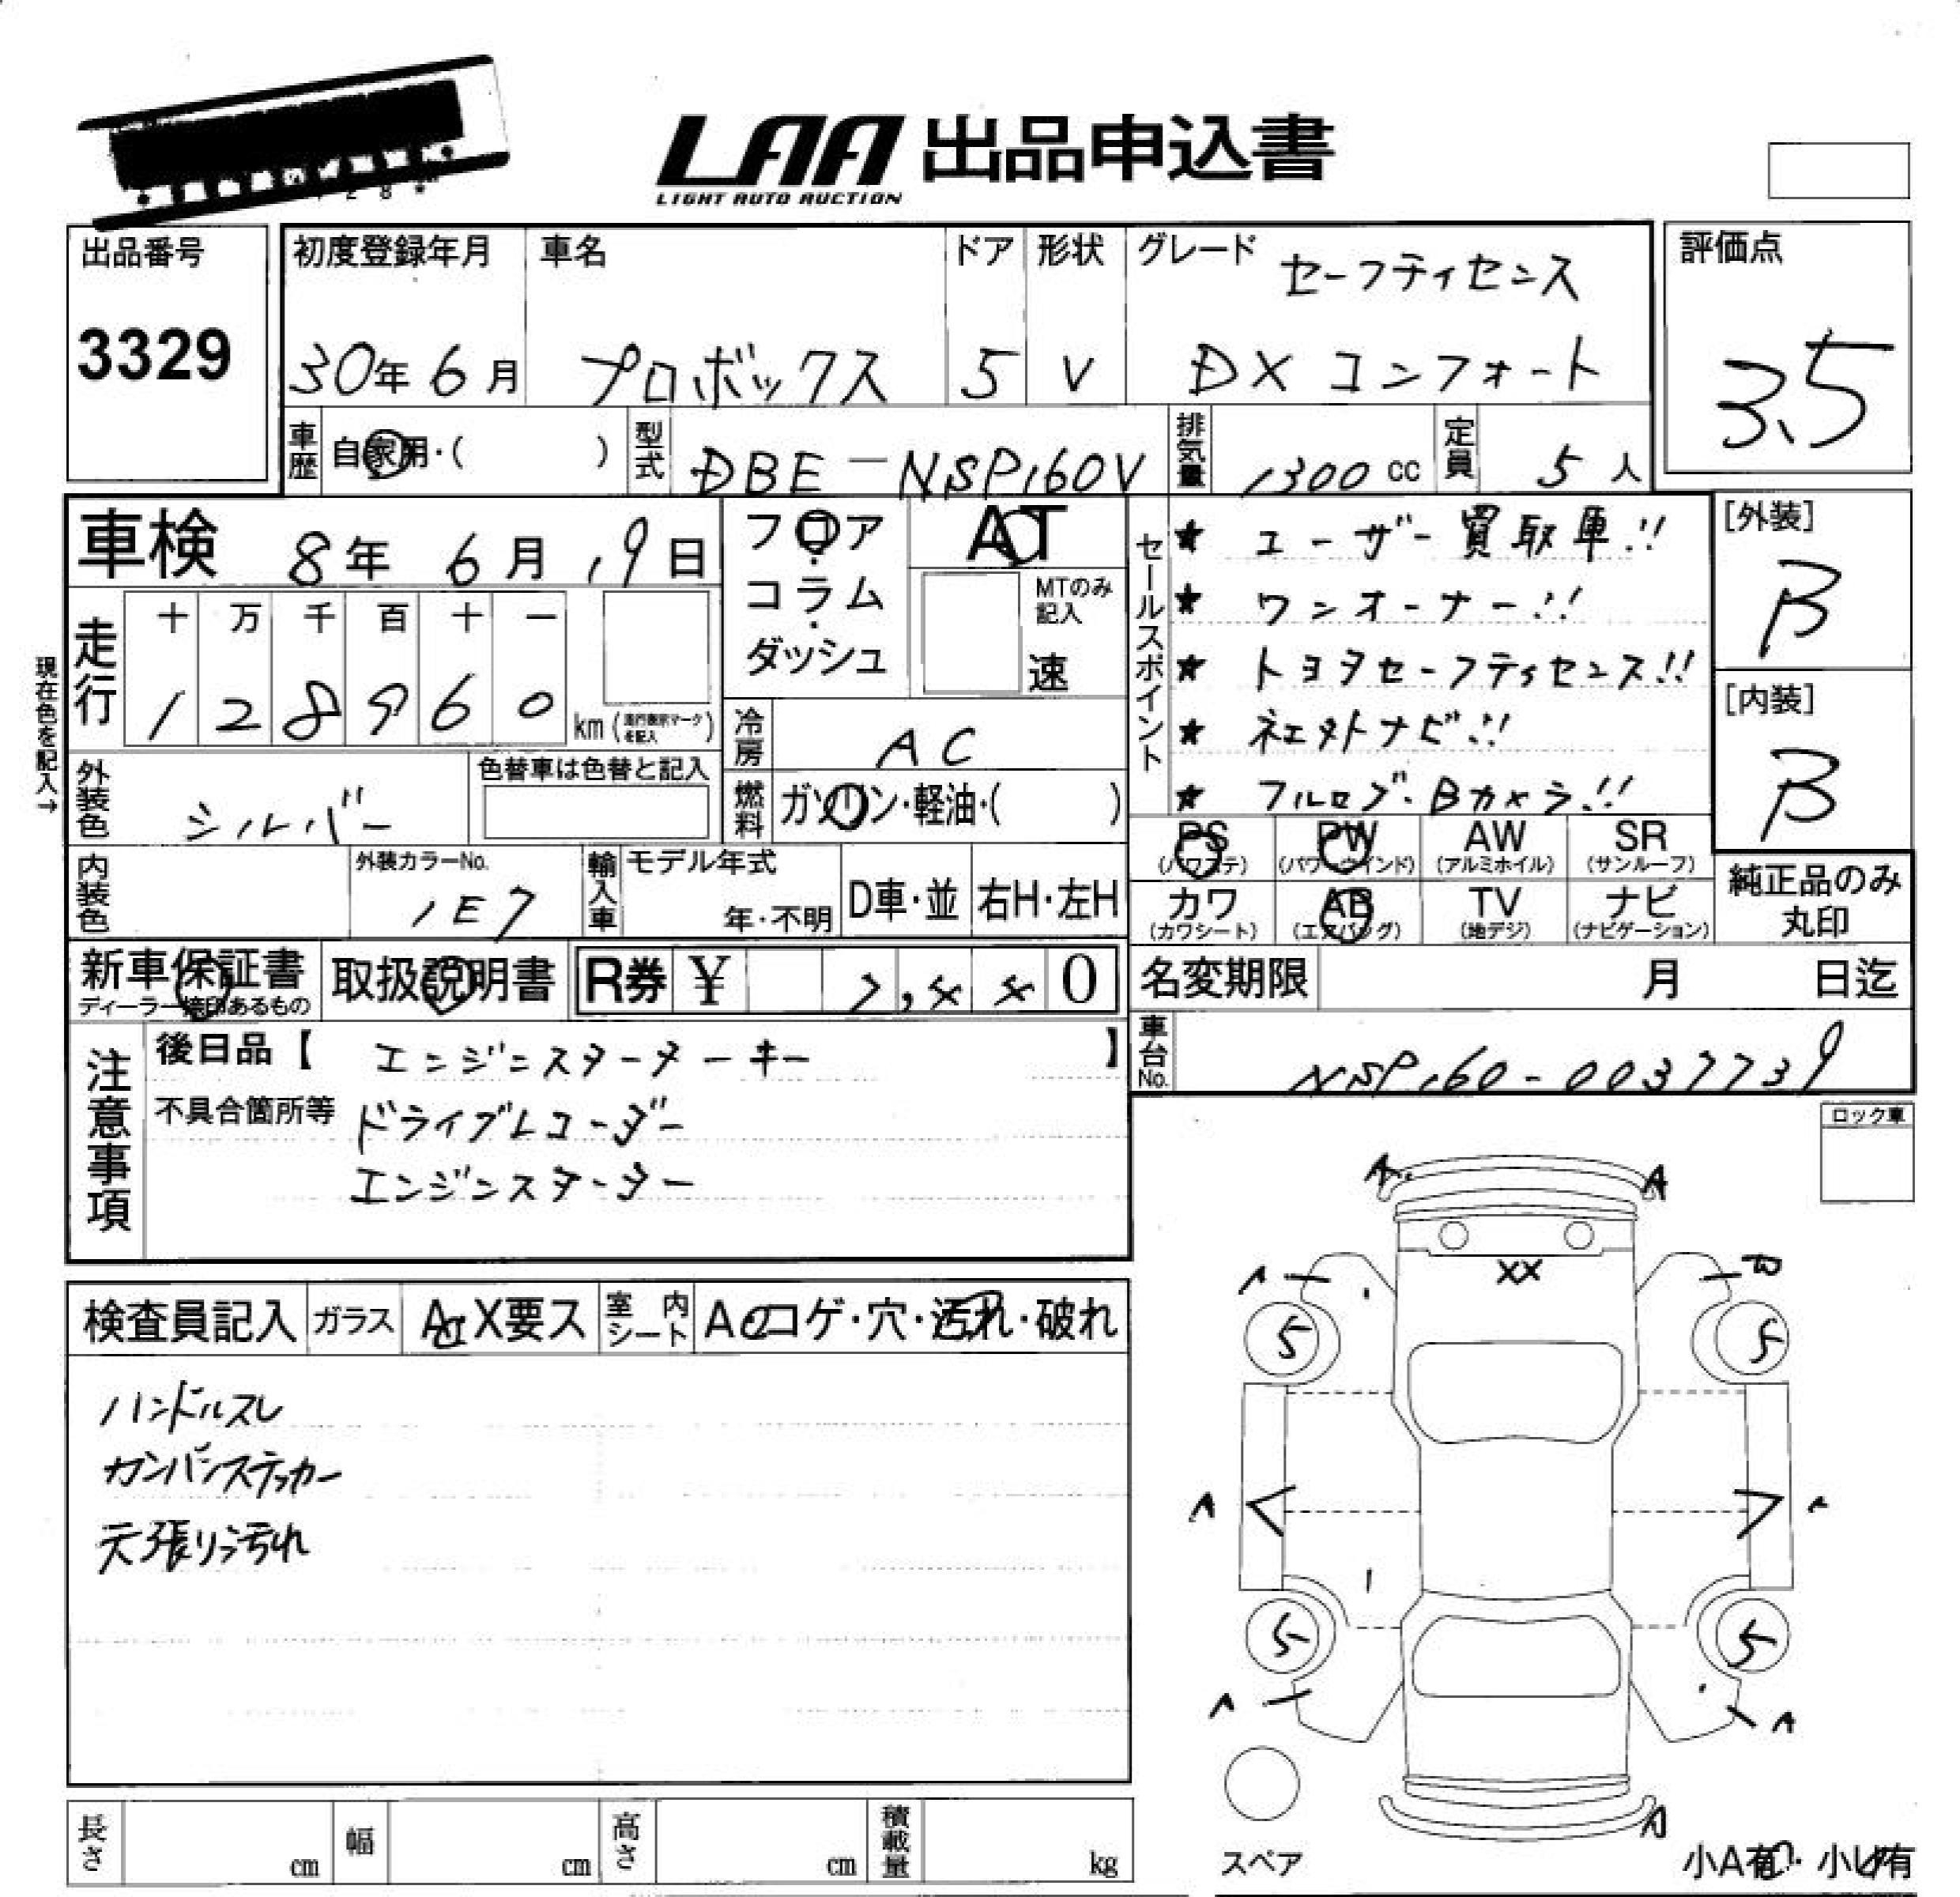 LAA 出品申込書
LIGHT AUTO AUCTION
出品番号
3329
初度登録年月
30年 6月
車名
プロボックス
ドア
5
形状
V
グレード
セーフティセンス
DX コンフォート
評価点
3.5
車歴
自家用・( )
型式
DBE-NSP160V
排気量
1300 cc
定員
5 人
車検 8年 6月 19日
フロア
・
コラム
・
ダッシュ
AT
MTのみ
記入
速
セールスポイント
★ ユーザー買取車!!
★ ワンオーナー!!
★ トヨタセーフティセンス!!
★ 社外ナビ!!
★ フルセグ・Bカメラ!!
[外装]
B
[内装]
B
現在色を記入→
走行
十 万 千 百 十 一
1 2 8 9 6 0
km (走行表示マークを記入)
冷房
AC
外装色
シルバー
色替車は色替と記入
燃料
ガソリン・軽油・( )
PS
(パワステ)
PW
(パワーウインド)
AW
(アルミホイル)
SR
(サンルーフ)
カワ
(カワシート)
AB
(エアバッグ)
TV
(地デジ)
ナビ
(ナビゲーション)
純正品のみ
丸印
内装色
外装カラーNo.
1E7
輸入車
モデル年式
年・不明
D車・並
右H・左H
新車保証書
ディーラー捺印あるもの
取扱説明書
R券 ¥ 0
名変期限 月 日迄
車台No.
NSP160-0037739
注意事項
後日品【 エンジンスターターキー 】
不具合箇所等 ドライブレコーダー
エンジンスターター
ロック車
検査員記入
ガラス
A X要ス
室内シート
A コゲ・穴・汚れ・破れ
ハンドルスレ
カンバンステッカー
天張り汚れ
A
A
XX
A
5
5
A
5
5
A
A
A
スペア
長さ cm
幅 cm
高さ cm
積載量 kg
小A有・小U有